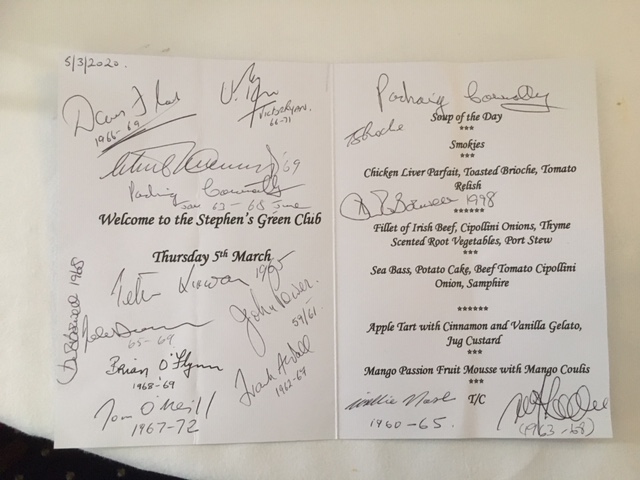 5/3/2020.
1966-69
Victor Ryan.
66-71
'69
Padraig Connolly
Jan 63 - 68 June
Welcome to the Stephen's Green Club
Thursday 5th March
1968
Peter Kirwan 1965
John Power.
59/61
65-69
Brian O'Flynn
1968-'69
1962-67
Tom O'Neill
1967-72
Padraig Connolly
Soup of the Day
***
Smokies
***
Chicken Liver Parfait, Toasted Brioche, Tomato
Relish
1998
******
Fillet of Irish Beef, Cipollini Onions, Thyme
Scented Root Vegetables, Port Stew
***
Sea Bass, Potato Cake, Beef Tomato Cipollini
Onion, Samphire
******
Apple Tart with Cinnamon and Vanilla Gelato,
Jug Custard
***
Mango Passion Fruit Mousse with Mango Coulis
***
T/C
Willie Nash
1960-65.
(1963-68)